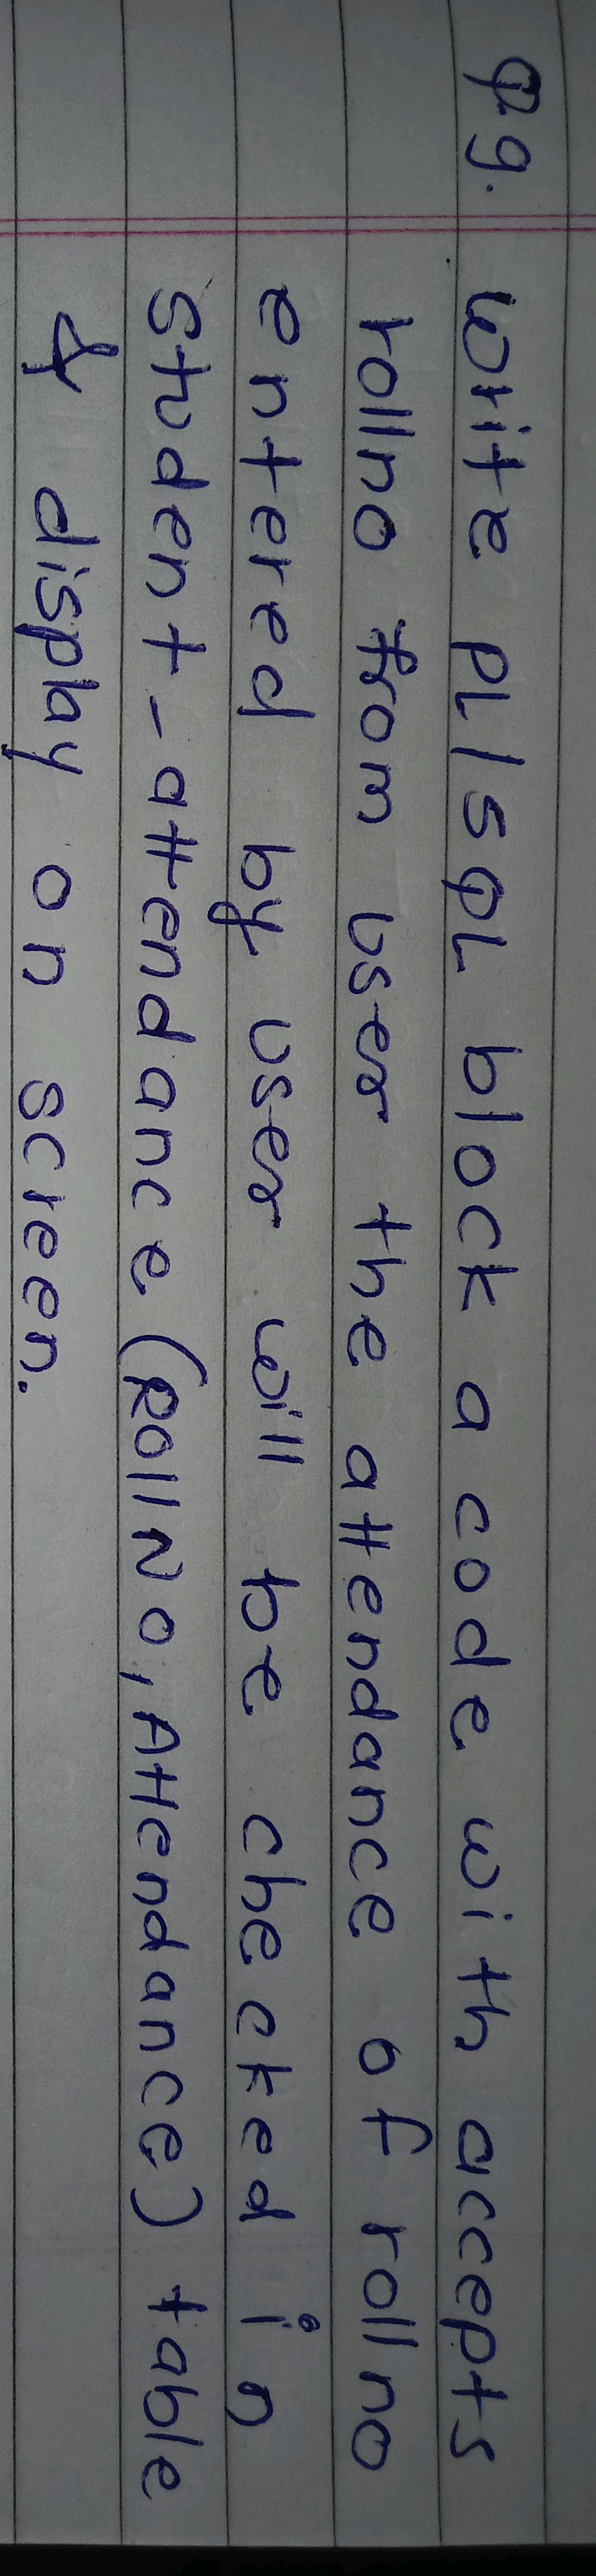 Q.9. write PL/SQL block a code with accepts
rollno from user the attendance of rollno
entered by user will be checked in
student-attendance (RollNo, Attendance) table
& display on screen.